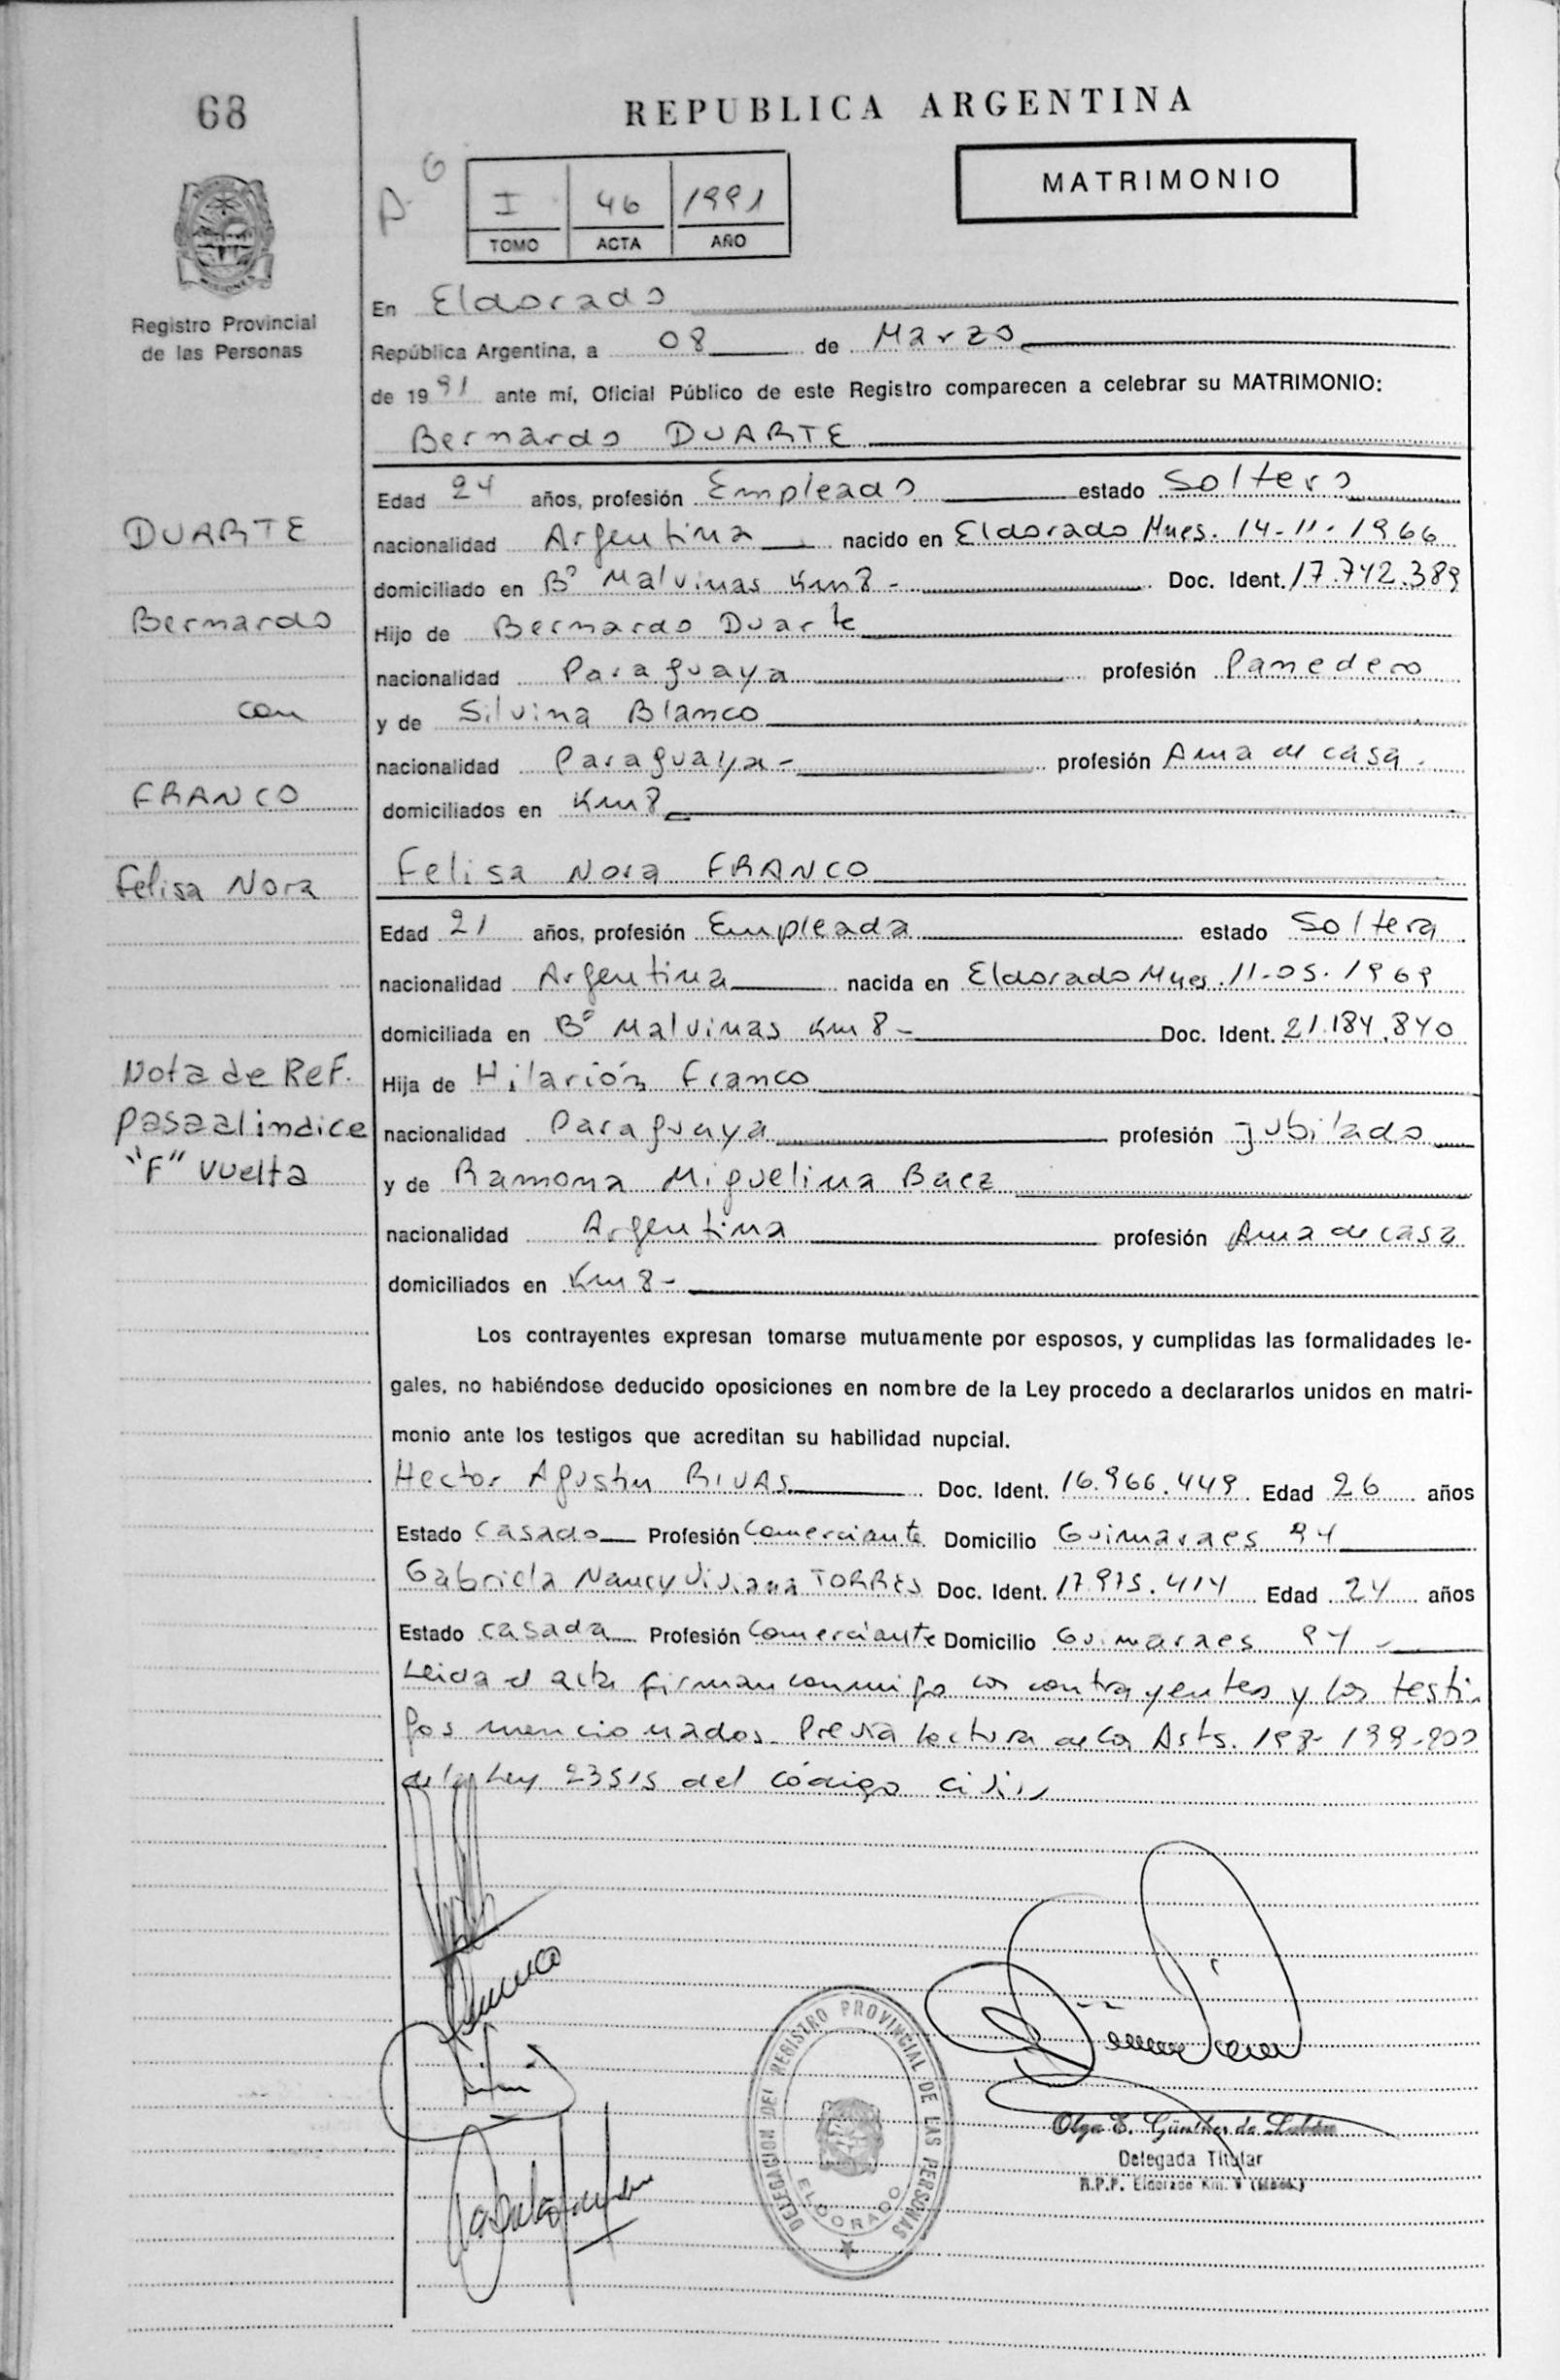 68
REPUBLICA ARGENTINA
MATRIMONIO
I 46 1991
TOMO ACTA AÑO
Registro Provincial
de las Personas
En Eldorado
República Argentina, a 08 de Marzo
de 1991 ante mí, Oficial Público de este Registro comparecen a celebrar su MATRIMONIO:
Bernardo DUARTE
Edad 24 años, profesión Empleado estado Soltero
DUARTE
nacionalidad Argentina nacido en Eldorado Mnes. 14-11-1966
domiciliado en Bº Malvinas Km 8 - Doc. Ident. 17.742.389
Bernardo
Hijo de Bernardo Duarte
nacionalidad Paraguaya profesión Panedero
con
y de Silvina Blanco
nacionalidad Paraguaya - profesión Ama de casa.
FRANCO
domiciliados en Km 8
Felisa Nora
Felisa Nora FRANCO
Edad 21 años, profesión Empleada estado Soltera
nacionalidad Argentina nacida en Eldorado Mnes. 11-05-1969
domiciliada en Bº Malvinas Km 8 - Doc. Ident. 21.184.840
Nota de Ref.
Hija de Hilarión Franco
pasa al indice
nacionalidad Paraguaya profesión Jubilado
"F" vuelta
y de Ramona Miguelina Baez
nacionalidad Argentina profesión Ama de casa
domiciliados en Km 8 -
Los contrayentes expresan tomarse mutuamente por esposos, y cumplidas las formalidades le-
gales, no habiéndose deducido oposiciones en nombre de la Ley procedo a declararlos unidos en matri-
monio ante los testigos que acreditan su habilidad nupcial.
Hector Agustin RIVAS Doc. Ident. 16.966.449 Edad 26 años
Estado Casado Profesión Comerciante Domicilio Guimaraes 94
Gabriela Nancy Viviana TORRES Doc. Ident. 17.975.414 Edad 24 años
Estado Casada Profesión Comerciante Domicilio Guimaraes 94 -
Leida el acta firman conmigo los contrayentes y los testi-
gos mencionados. Previa lectura de los Arts. 198-199-200
de la Ley 23515 del Código Civil
DELEGACION DEL REGISTRO PROVINCIAL DE LAS PERSONAS
ELDORADO
Olga E. Günther de
Delegada Titular
R.P.P. Eldorado Km.